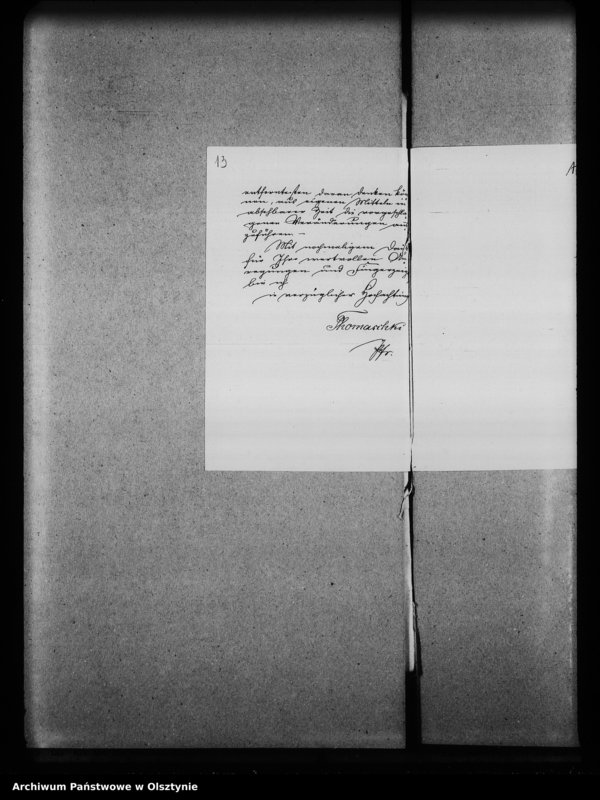 13
entferntesten daran denken kön
nen, aus eigenen Mitteln in
absehbarer Zeit die vorgeschla
genen Veränderungen aus
zuführen. –
Mit nochmaligem Dank
für Ihre wertvollen An
regungen und Fingerzeige
bin ich
in vorzüglicher Hochachtung
Thomaschki
Pfr.
A
Archiwum Państwowe w Olsztynie